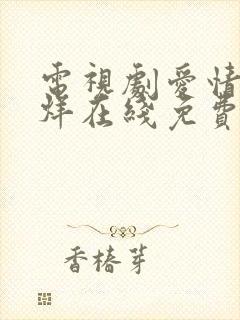 電視劇愛情
烊在綫免費
香椿芽